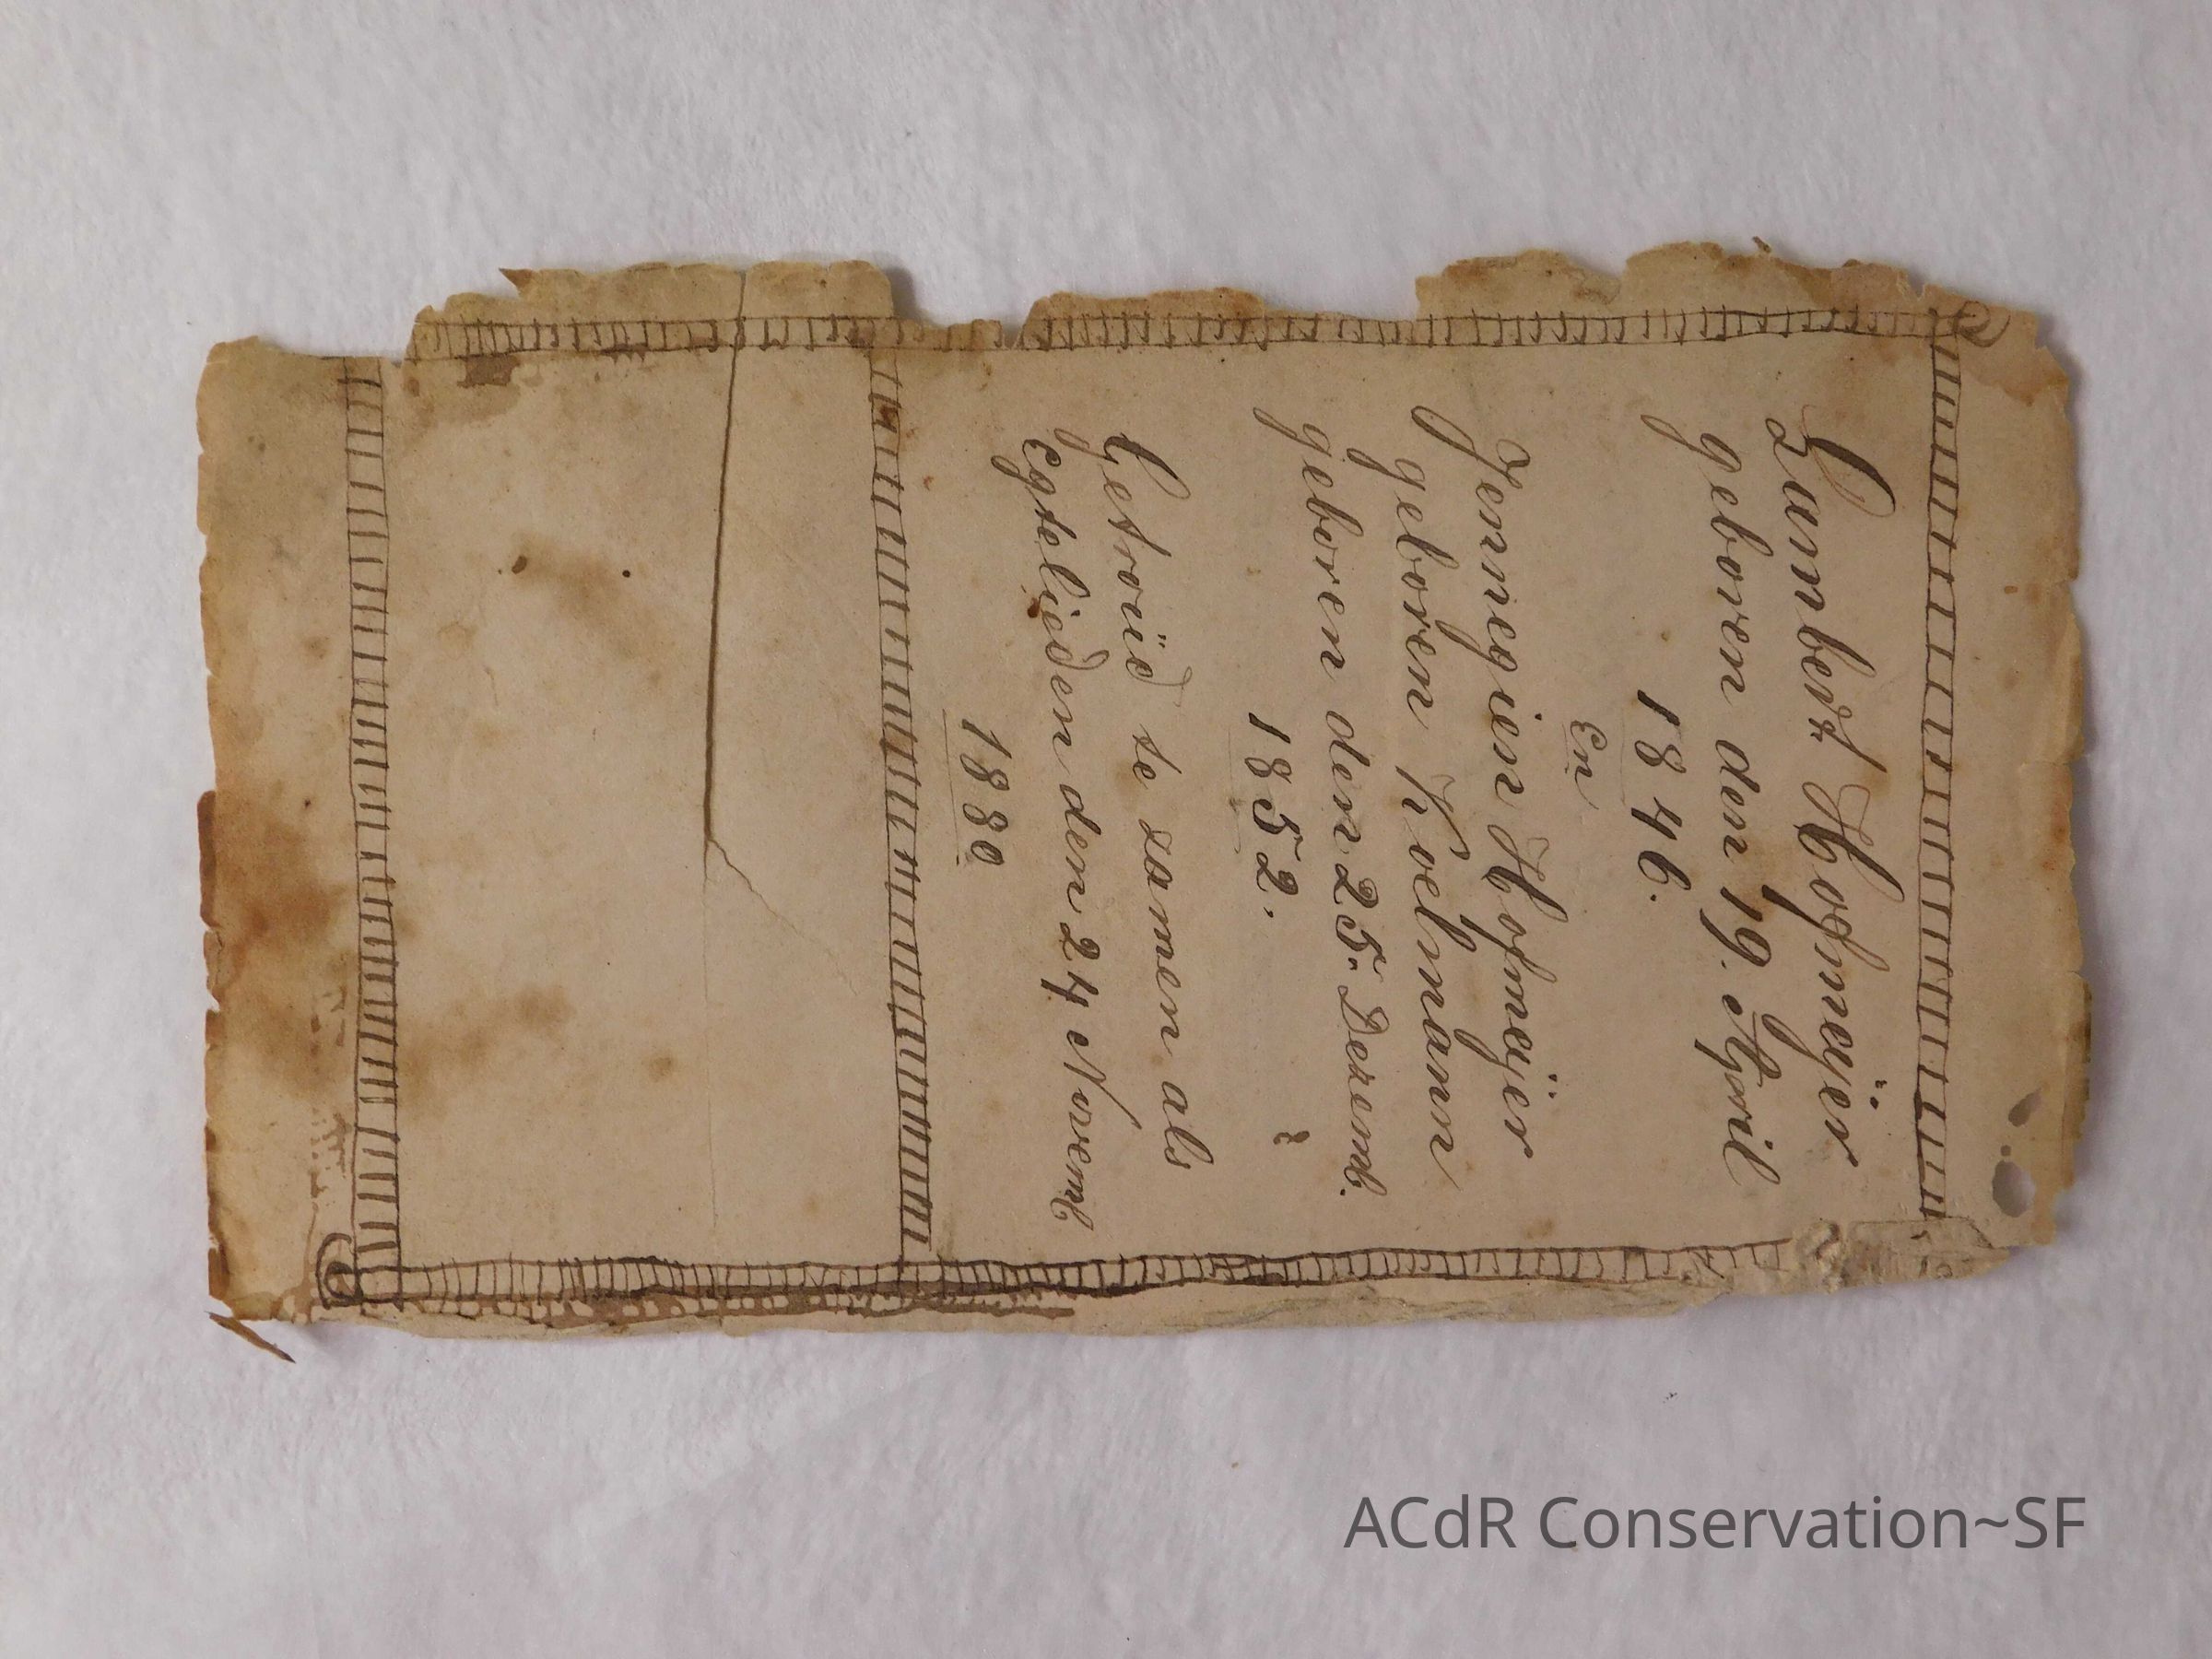 Lambert Hofmeÿer
geboren den 19. April
1846.
En
Jennegien Hofmeÿer
geboren Koelmann
geboren den 25. Decemb.
1852.
Getroüd te samen als
Egtelieden den 24 Novemb
1880
ACdR Conservation~SF